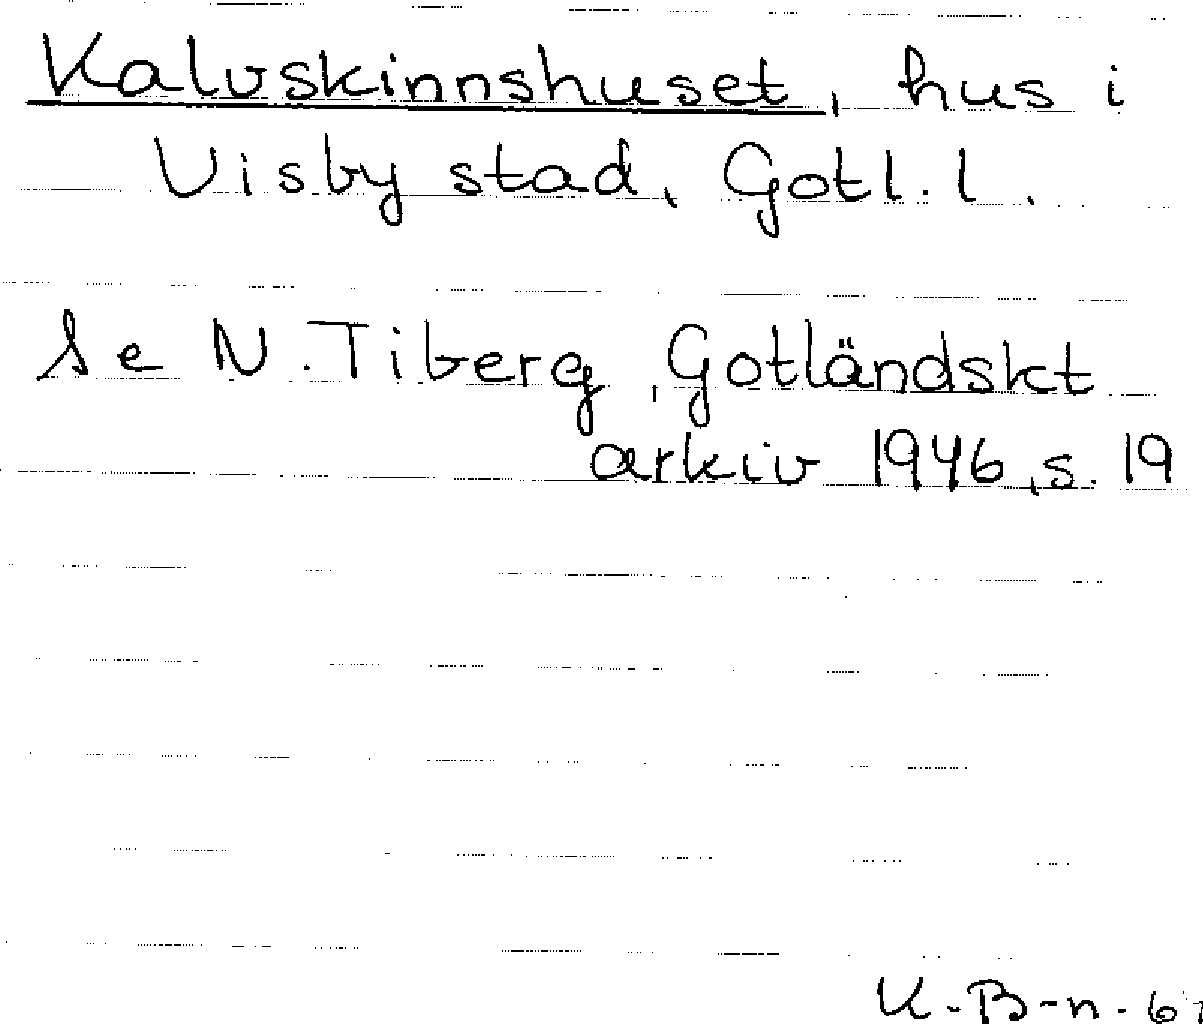 Kalvskinnshuset, hus i
Visby stad, Gotl. l.
Se N. Tiberg, Gotländskt
arkiv 1946, s. 19
K-B-n-